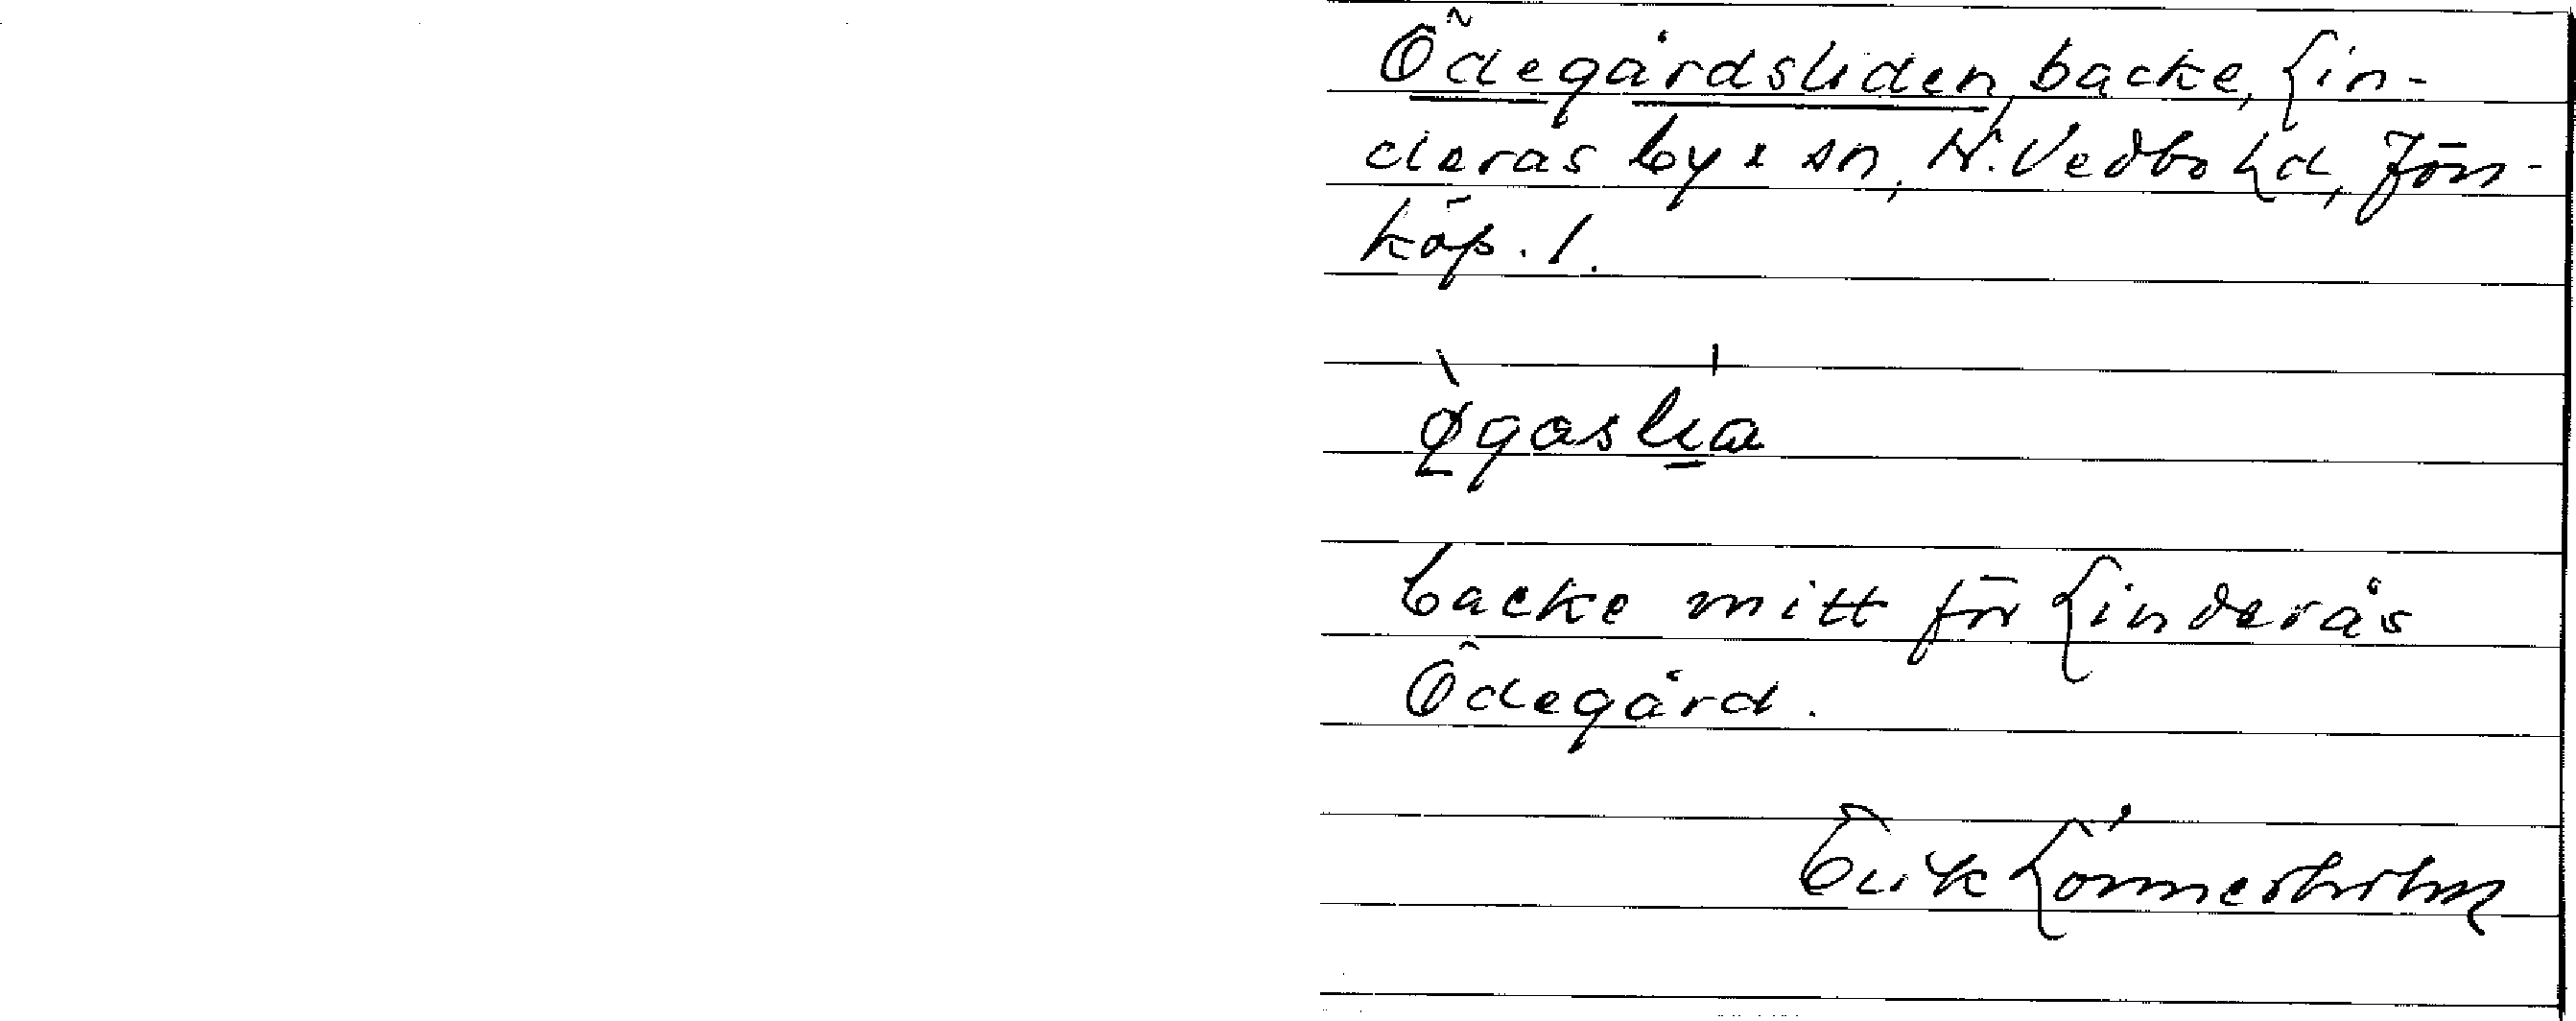 Ödegårdsliden, backe, Lin-
derås by o sn, N. Vedbo hd, Jön-
köp. l.
backe mitt för Linderås
Ödegård.
Erik Lönnerholm